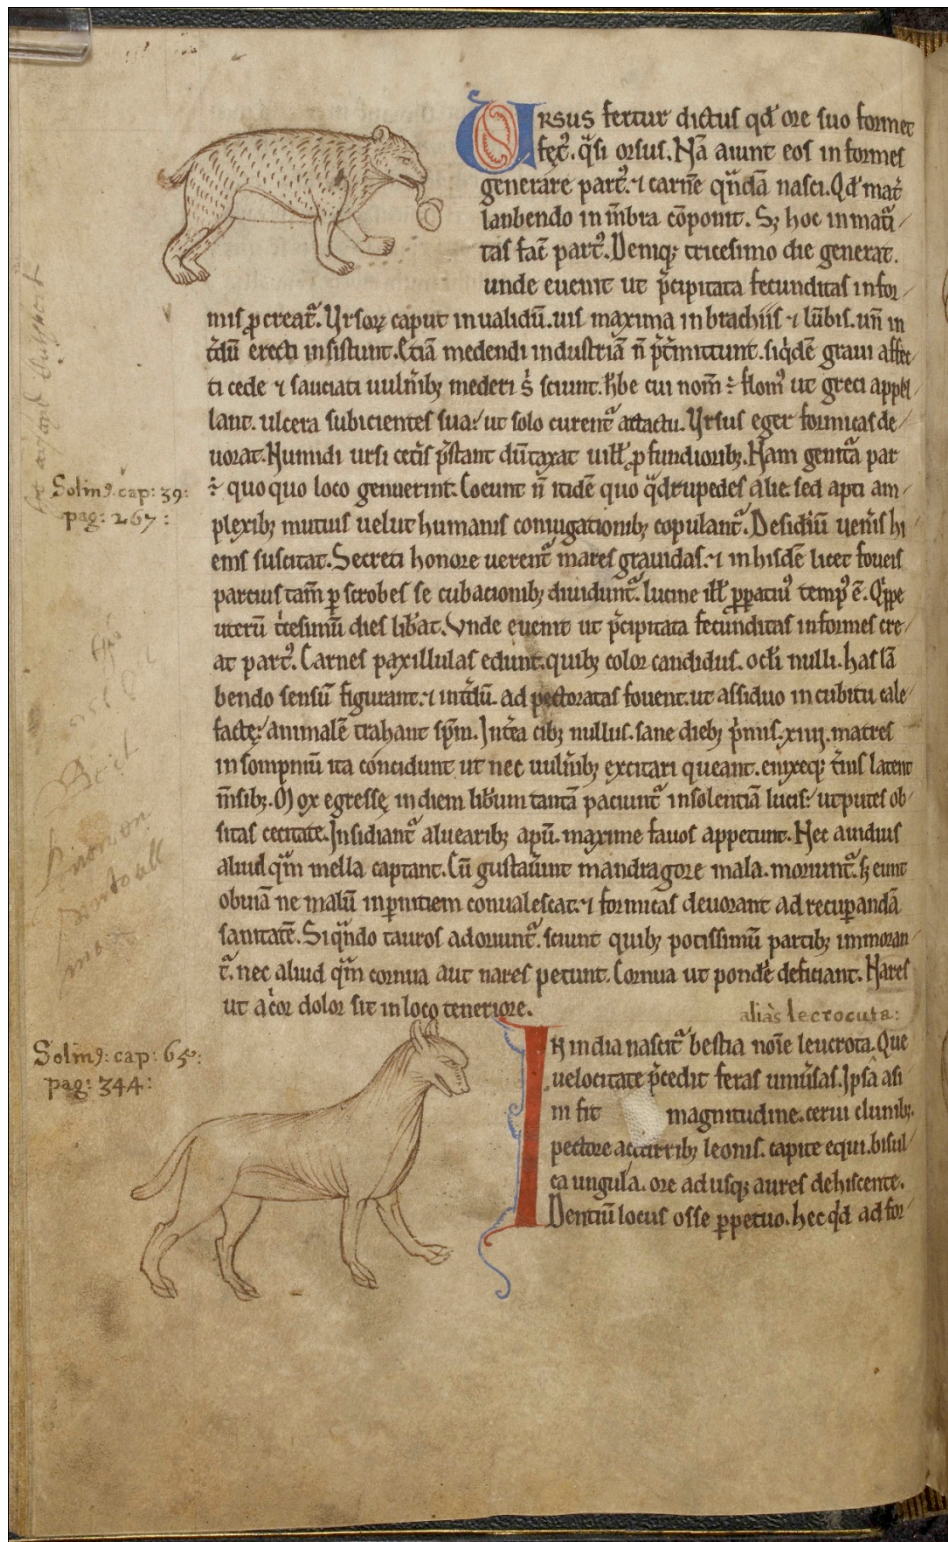 Ursus fertur dictus qđ ore suo formet
fęt᷒. q̃si orsus. Nã aiunt eos informes
generare part᷒. ⁊ carnẽ q̃ndã nasci. Qđ mat̃
lanbendo in m̃bra cõponit. Sꝫ hoc inmatũ
tas fac̃ part᷒. Deniqꝫ tricesimo die generat.
unde euenit ut p̃cipitata fecunditas infor
mis ꝓcreat᷑. Ursoꝝ caput inualidũ. uis maxima in brachiis ⁊ lũbis. uñ in
t̃dũ erecti insistunt. Etiã medendi industriã ñ p̃t̃mittunt. siq̇dẽ graui affec
ti cede ⁊ sauciati uulñibꝫ mederi s̓ sciunt. h̃be cui nom̃ ÷ flom᷒ ut greci appel
lant. ulcera subicientes sua: ut solo curent᷑ attactu. Ursus eger formicas de
uorat. Numidi ursi cet̃is p̃stant dũtaxat uill̃ ꝓfundioribꝫ. Nam genit̃a par
÷ quoquo loco genuerint. Coeunt ñ itidẽ quo q̃drupedes alie. sed apti am
plexibꝫ mutuis uelut humanis coniugationibꝫ copulant᷑. Desidiũ uen̓is hi
ems suscitat. Secreti honore uerent᷑ mares grauidas. ⁊ in hisdẽ licet foueis
parcius tam̃ p̱ scrobes se cubacionibꝫ diuidunt᷑. lucine ill̃ p̱pacius temp᷒ ẽ. Q̓ppe
uterũ t̓cesimũ dies lib̃at. Unde euenit ut p̃cipitata fecunditas informes cre
at part᷒. Carnes paxillulas edunt. quibꝫ color candidus. oc̃li nulli. has lã
bendo sensũ figurant. ⁊ int̃dũ. ad pectoratas fouent. ut assiduo incubitu cale
factę: animalẽ trahant sp̃m. Int̃ea cibꝫ nullus. sane diebꝫ p̓mis .xiiij. matres
in sompniũ ita concidunt ut nec uulñibꝫ excitari queant. enixęqꝫ t̓nis latent
m̃sibꝫ. Mox egressę in diem lib̃um tantã paciunt᷑ insolentiã lucis: ut putes ob
sitas cecitate. Insidiant᷑ aluearibꝫ apũ. maxime fauos appetunt. Nec auidius
aliud q̃m mella captant. Cũ gustaũint mandragore mala. moriunt᷑. sꝫ eunt
obuiã ne malũ in p̱nitiem conualescat. ⁊ formicas deuorant ad recup̱andã
sanitatẽ. Siq̃ndo tauros adoriunt᷑. sciunt quibꝫ potissimũ partibꝫ immoran
t᷑. nec aliud q̃m cornua aut nares petunt. Cornua ut pondẽ deficiant. Nares
ut ac̓or dolor sit in loco teneriore.
Solin9: cap: 39:
pag: 267:
aliàs lecrocuta:
Solin9: cap: 65:
pag: 344:
In india nascit᷑ bestia noĩe leucrota. Que
uelocitate p̃cedit feras uniũsas. Ipsa asi
ni fit magnitudine. cerui clunibꝫ.
pectore ac cruribꝫ leonis. capite equi. bisul
ca ungula. ore ad usqꝫ aures dehiscente.
Dentiũ locus osse p̱petuo. hec q̇d ad for